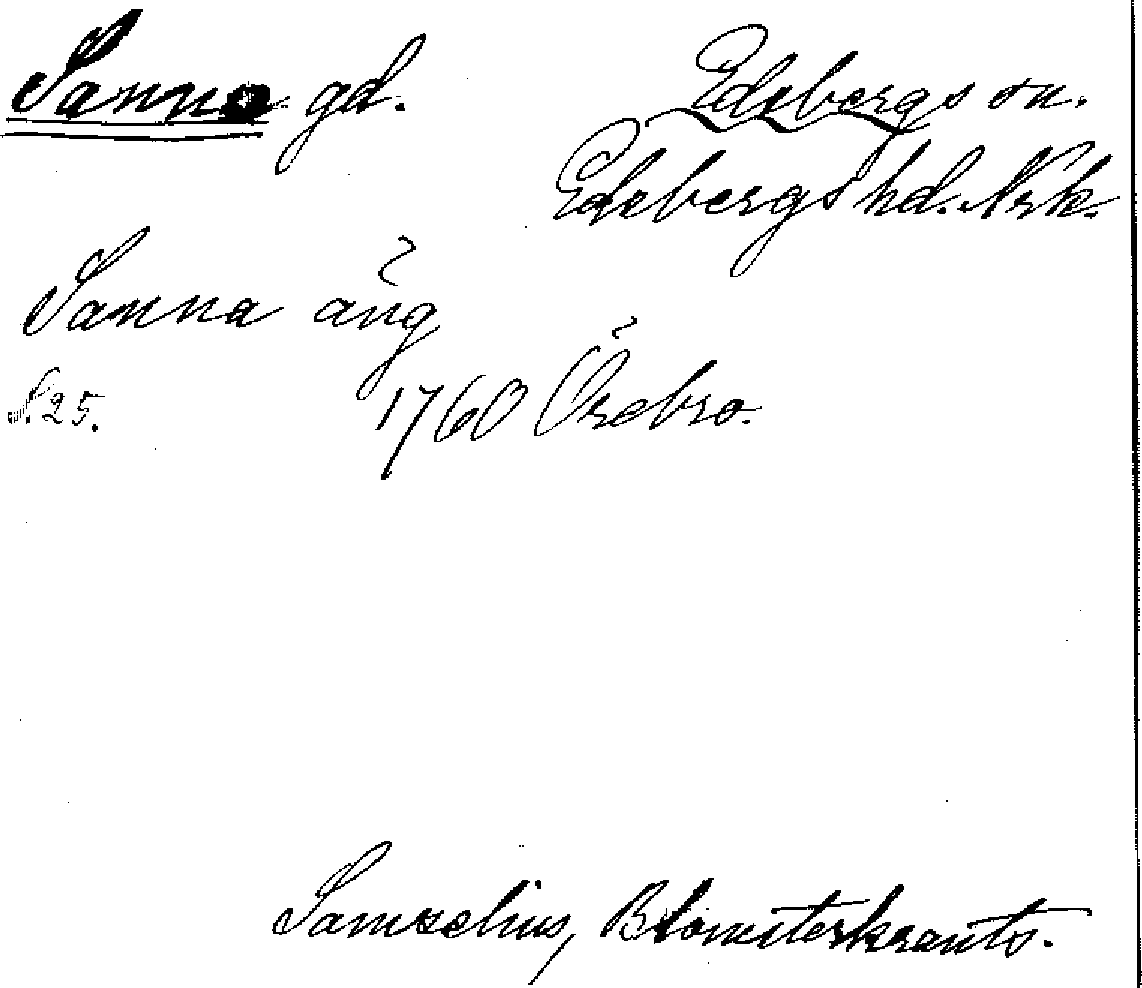 Sanna gd. Edsbergs sn.
Edsbergs hd. Nrk.
Sanna äng
S. 25. 1760 Örebro.
Samzelius, Blomsterkrants.